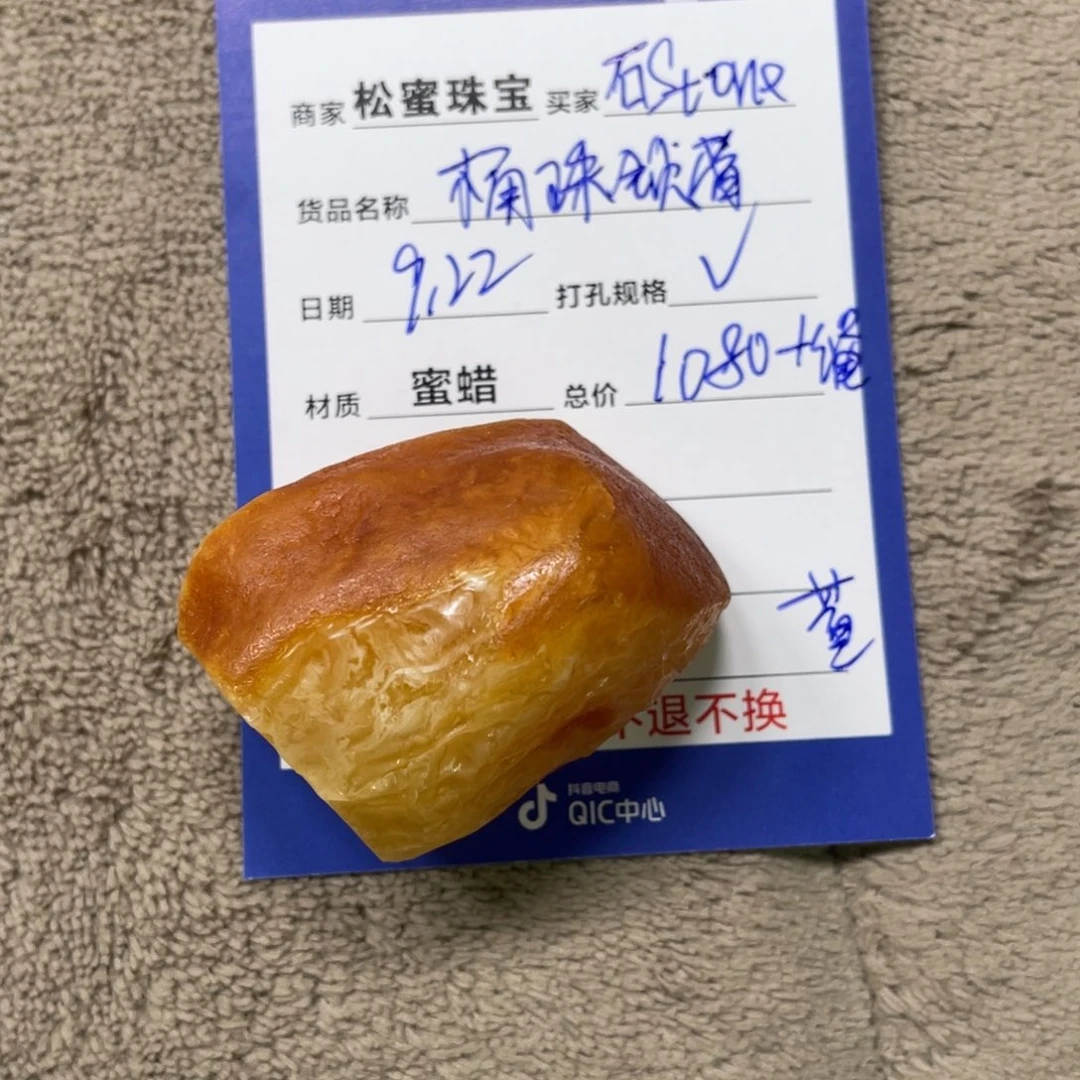 商家 松蜜珠宝 买家 石Stone
货品名称 桶珠
日期 9.22 打孔规格 ✓
材质 蜜蜡 总价 1080+绳
不退不换
抖音电商
QIC中心